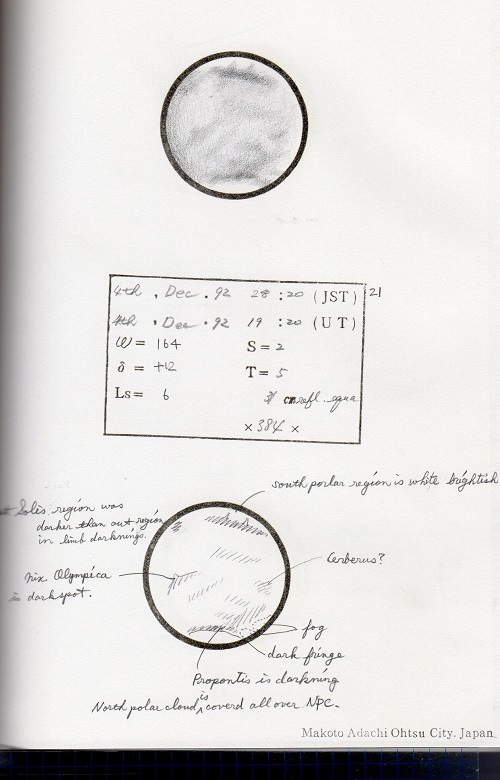 4th , Dec . 92 28 : 20 (JST) 21
4th , Dec . 92 19 : 20 (UT)
ω = 164 S = 2
δ = +12 T = 5
Ls = 6
31 cm refl. equa
× 384 ×
south porlar region is white brightish
Solis region was
darker than out region
in limb darknings.
Cerberus?
Nix Olympica
is darkspot.
fog
dark fringe
Propontis is darkning
North polar cloud is coverd all over NPC.
Makoto Adachi Ohtsu City. Japan